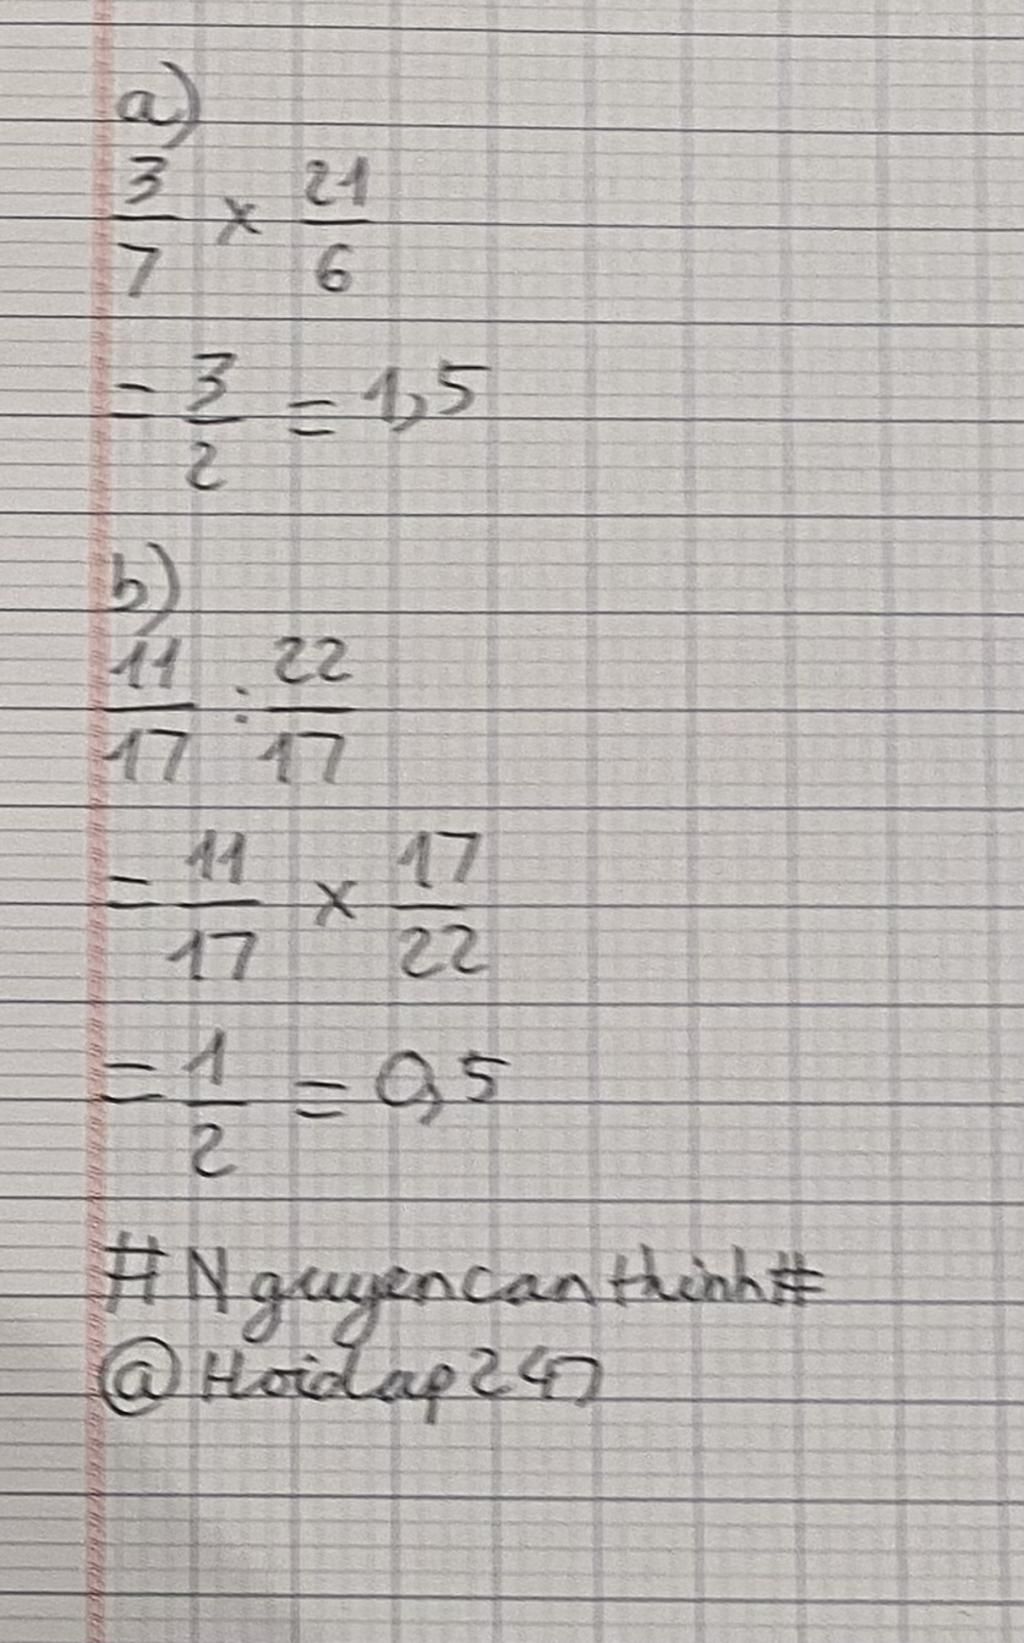 a)
3/7 × 21/6
= 3/2 = 1,5
b)
11/17 : 22/17
= 11/17 × 17/22
= 1/2 = 0,5
#Nguyencanthinh#
@Hoidap247